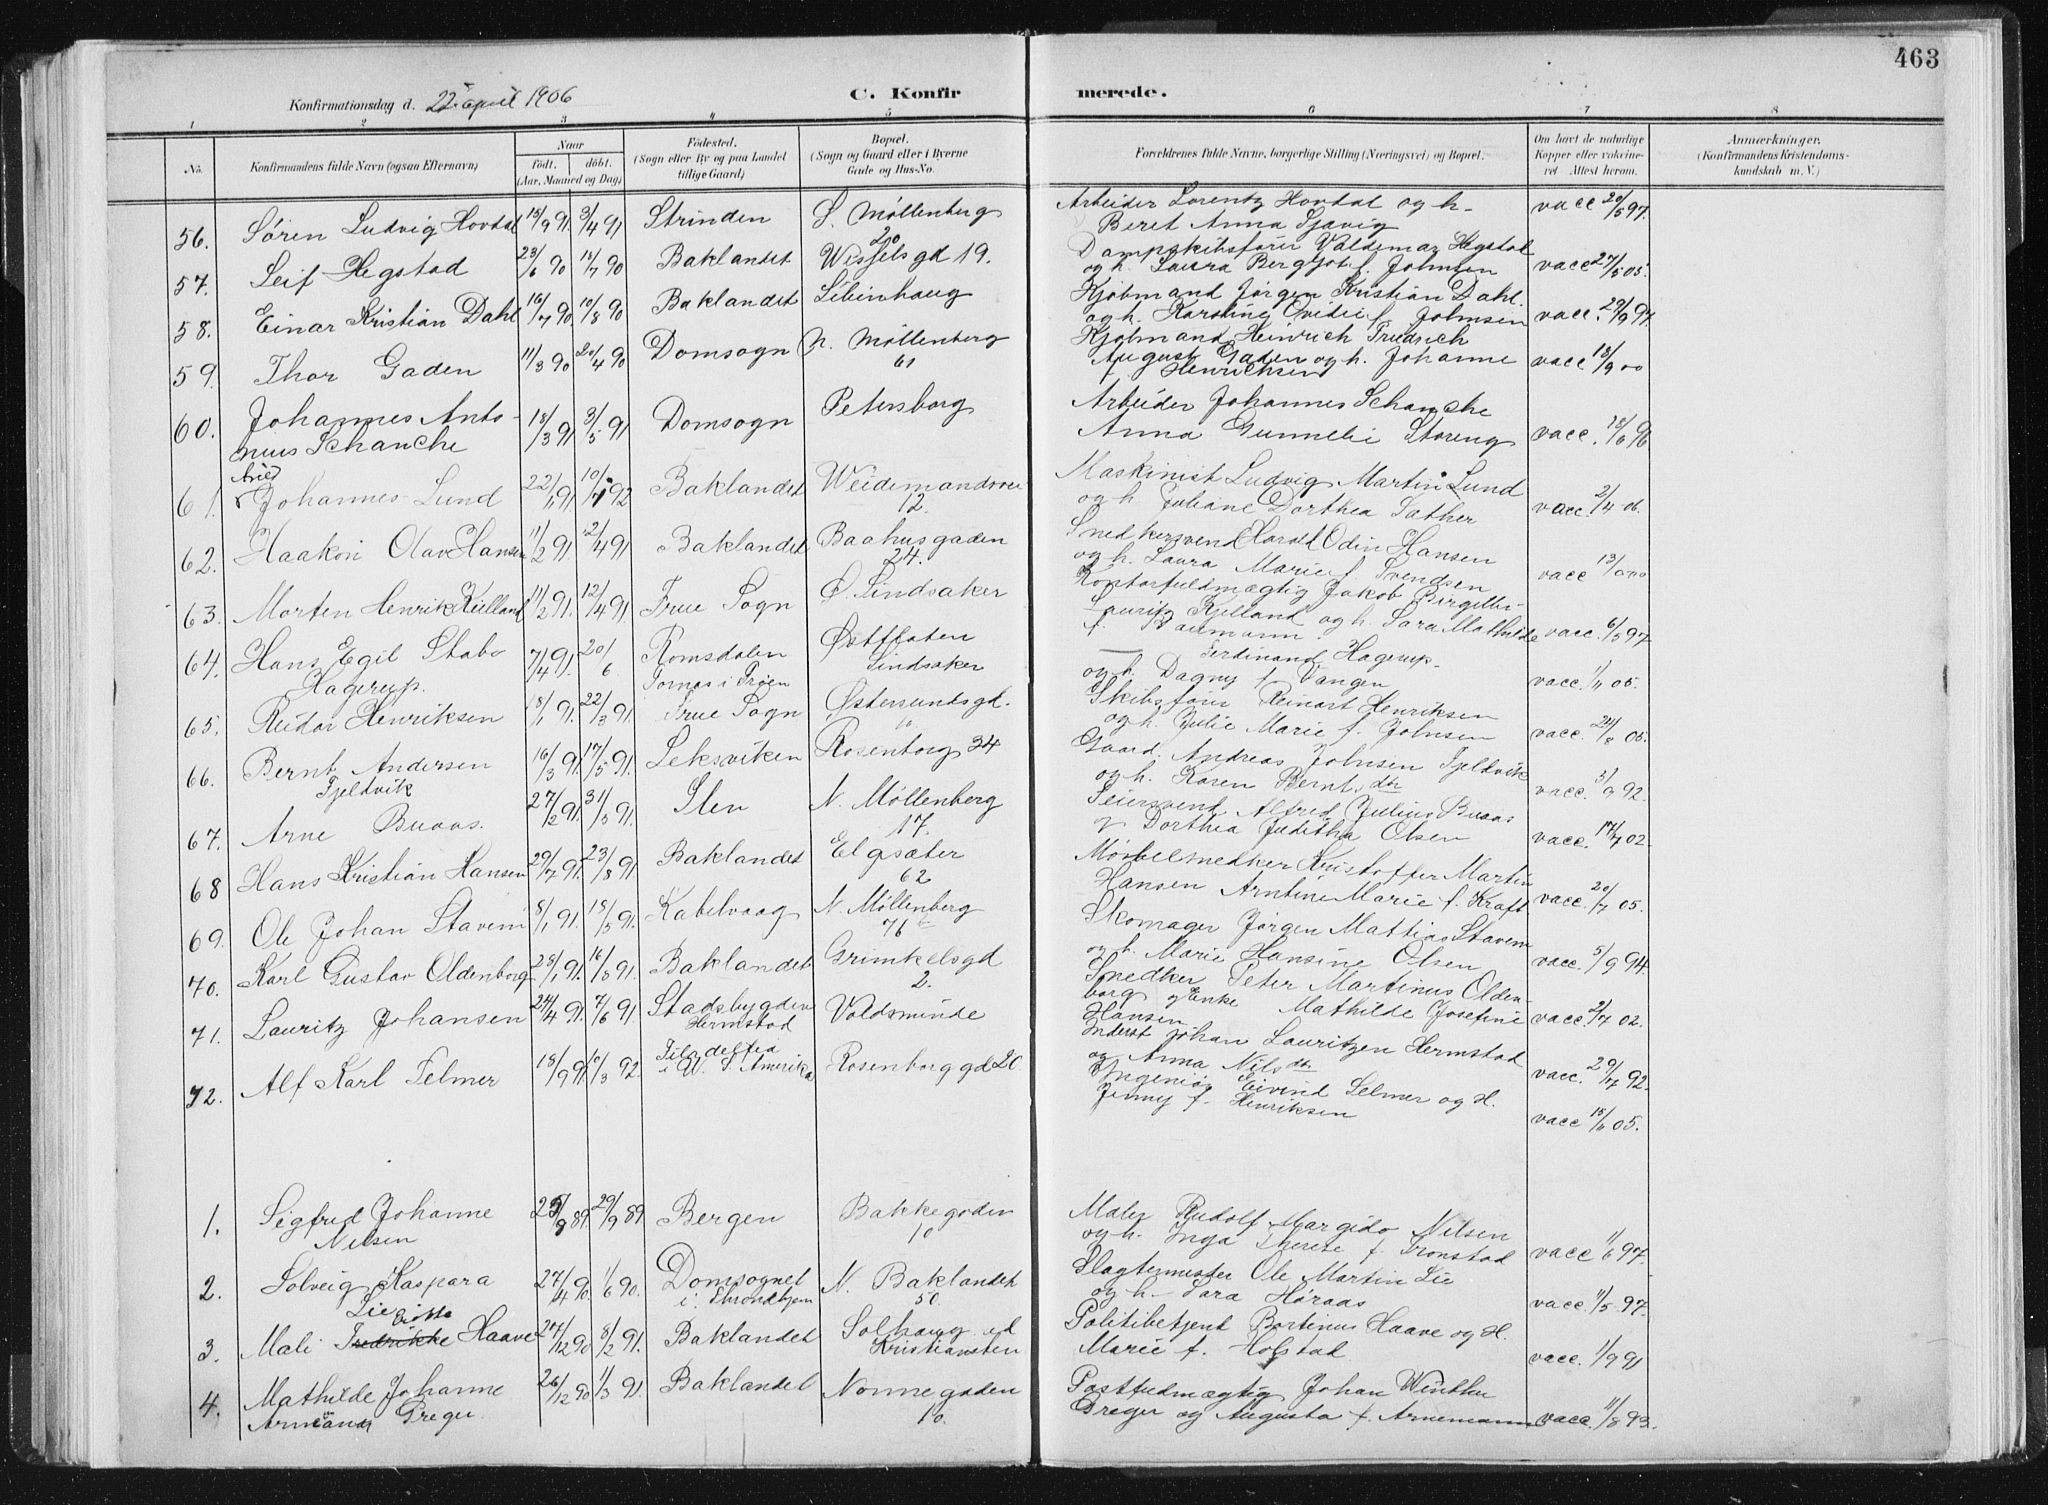 463
Konfirmationsdag d. 22 april 1906
C. Konfirmerede.
1 2 3 4 5 6 7 8
No. Konfirmandens fulde Navn (ogsaa Efternavn) Naar født. døbt. (Aar, Maaned og Dag) Fødested. (Sogn eller By og paa Landet tillige Gaard) Bopæl. (Sogn og Gaard eller i Byerne Gade og Hus-No. Forældrenes fulde Navne, borgerlige Stilling (Næringsvei) og Bopæl. Om havt de naturlige Kopper eller vaccineret Attest herom. Anmærkninger. (Konfirmandens Kristendomskundskab m. V.)
56. Søren Ludvig Hovdal 13/9 91 3/4 91 Strinden S. Møllenberg 20 Arbeider Lorentz Hovdal og h. vacc 20/5 97.
Beret Anna
57. Leif Hegstad 23/6 90 13/7 90 Baklandet Wesselsgd 19. Dampskibsfører Valdemar Hegstad
og h. Laura Bergjot f. Johnsen vacc 27/5 05.
58. Einar Kristian Dahl 16/7 90. 10/8 90 Baklandet Lillienhaug Kjøbmand Jørgen Kristian Dahl.
og h. Karoline Ovidie f. Johnsen vacc. 29/9 97.
59. Thor Gaden 11/3 90 20/4 90 Domsogn N. Møllenberg 61 Kjøbmand Heinrich Friedrich
August Gaden og h. Johanne vacc 18/9 00
f. Henrichsen
60. Johannes Anto- 18/3 91 3/5 91 Domsogn Petersborg Arbeider Johannes Schanche
nius Schanche Anna Gunnelie Storeng vacc. 18/6 96
61. Arild Johannes Lund 22/1 91 10/4 92 Baklandet Weidemandsvei 12. Maskinist Ludvig Martin Lund
og h. Juliane Dorthea Sather vacc. 2/4 06.
62. Haakon Olav Hansen 11/2 91 12/4 91 Baklandet Baahusgaden 24. Snedkersvend Harold Odin Hansen
og h. Laura Marie f. Svendsen vacc
63. Morten Henrik Kielland 11/2 91. 12/4 91 Frue Sogn Ø. Lindsaker Kontorfuldmægtig Jakob Birgithe
Lauritz Kjelland og h. Sara Mathilde vacc. 6/5 97
f. Baumann
64. Hans Egil Stabo 7/4 91. 20/6 Romsdalen Østflaten Ferdinand Hagerup.
Hagerup. Tornes i Frøen Lindsaker og h. Dagny f. Vangen vacc. 1/11 05.
65. Reidar Henriksen 18/1 91. 22/3 91. Frue Sogn Østersundsgd. 10 Skibsfører Reinart Henriksen
og h. Julie Marie f. Johnsen vacc. 24/8 05.
66. Bernt Andersen 16/3 91. 17/5 91. Leksviken Rosenborg 34 Gaard. Andreas Johnsen Fjeldvik
Fjeldvik og h. Karen Bernts dtr vacc. 3/9 92.
67. Arne Buaas. 27/2 91. 31/5 91. Ilen N. Møllenberg 17. Seiersvend Alfred Julius Buaas
og Dorthea Juditha Olsen vacc. 17/7 02.
68 Hans Kristian Hansen 29/7 91. 23/8 91 Baklandet Elgsæter 62 Møbelsnedker Kristoffer Martin
Hansen Arntine Marie f. Kraft vacc. 20/7 05.
69. Ole Johan Stavem 8/1 91. 18/5 91. Kabelvaag N. Møllenberg 76 Skomager Jørgen Mattias Stavem
og h. Marie Hansine Olsen vacc. 5/9 94
70. Karl Gustav Oldenborg 28/1 91. 16/8 91. Baklandet Grimkelsgd 2. Snedker Peter Martinus Olden-
borg og Enke Mathilde Josefine vacc. 2/7 02.
Hansen
71. Lauritz Johansen 24/4 91. 7/6 91. Stadsbygden Hermstad Voldsminde Inderst Johan Lauritzen Hermstad
og Anna Nils dtr vacc. 29/7 92.
72. Alf Karl Selmer 18/9 91. 10/3 92. Filadelfia i U. S. Amerika Rosenborggd 20. Ingeniør Eivind Selmer og H.
Jenny f. Henriksen vacc 15/11 05.
1. Sigfrid Johanne Nilsen 25/8 89. 29/9 89. Bergen Bakkegaden 10 Maler Rudolf Margido Nilsen
og h. Inga Therese f. Tronstad vacc 11/6 97.
2. Solveig Kaspara Lie 27/4 90. 1/6 90. Domsognet i Throndhjem N. Baklandet 50. Slagtermester Ole Martin Lie
og h. Sara Høraas vacc. 11/5 97.
3. Mali Fredrikke Haave 27/12 90 8/2 91. Baklandet Solhaug ved Kristiansten Politibetjent Bertinus Haave og H.
Marie f. Hofstad vacc. 1/9 91
4. Mathilde Johanne 26/12 90 1/3 91. Baklandet Nonnegaden 10. Postfuldmægtig Johan Winther
Arneman Greger Greger og Augusta f. Arnemann vacc. 11/8 93.